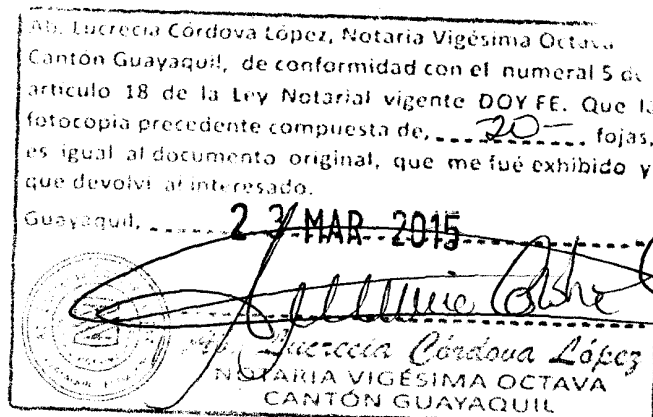 Ab. Lucrecia Córdova López, Notaria Vigésima Octava
Cantón Guayaquil, de conformidad con el numeral 5 de
articulo 18 de la Ley Notarial vigente DOY FE. Que la
fotocopia precedente compuesta de, 20- fojas,
es igual al documento original, que me fué exhibido y
que devolví al interesado.
Guayaquil, 23 MAR 2015
Ab. Lucrecia Córdova López
NOTARIA VIGÉSIMA OCTAVA
CANTÓN GUAYAQUIL